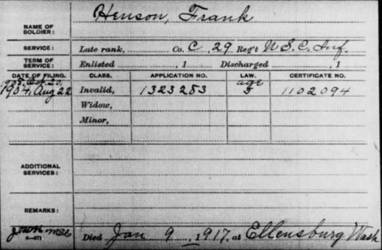 NAME OF SOLDIER: Henson, Frank
SERVICE: Late rank, Co. C, 29 Reg't U.S.C. Inf.
TERM OF SERVICE: Enlisted , 1 Discharged , 1
DATE OF FILING. CLASS. APPLICATION NO. LAW. CERTIFICATE NO.
age
1904, Aug 22 Invalid, 1323253 1102094
Widow,
Minor,
ADDITIONAL SERVICES:
REMARKS:
Died Jan 9, 1917, at Ellensburg Wash